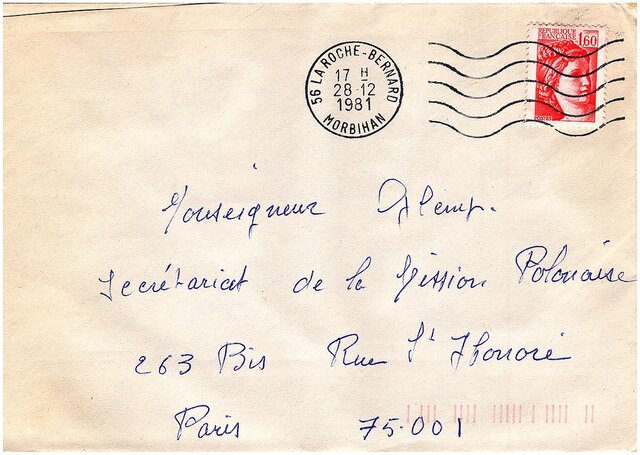 56 LA ROCHE-BERNARD
17 H
28-12
1981
MORBIHAN
REPUBLIQUE
FRANÇAISE
1,60
Monseigneur Glemp.
Secrétariat de la Mission Polonaise
263 Bis Rue St Honoré
Paris 75.001